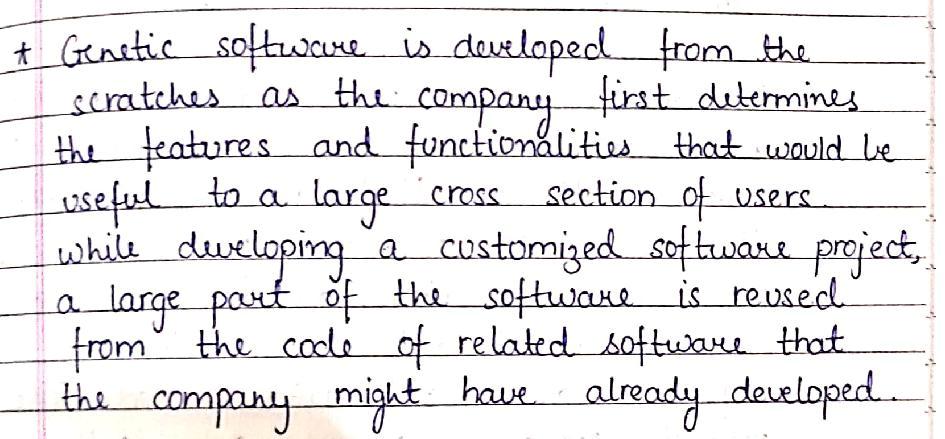 * Genetic software is developed from the
scratches as the company first determines
the features and functionalities that would be
useful to a large cross section of users
while developing a customized software project,
a large part of the software is reused
from the code of related software that
the company might have already developed.